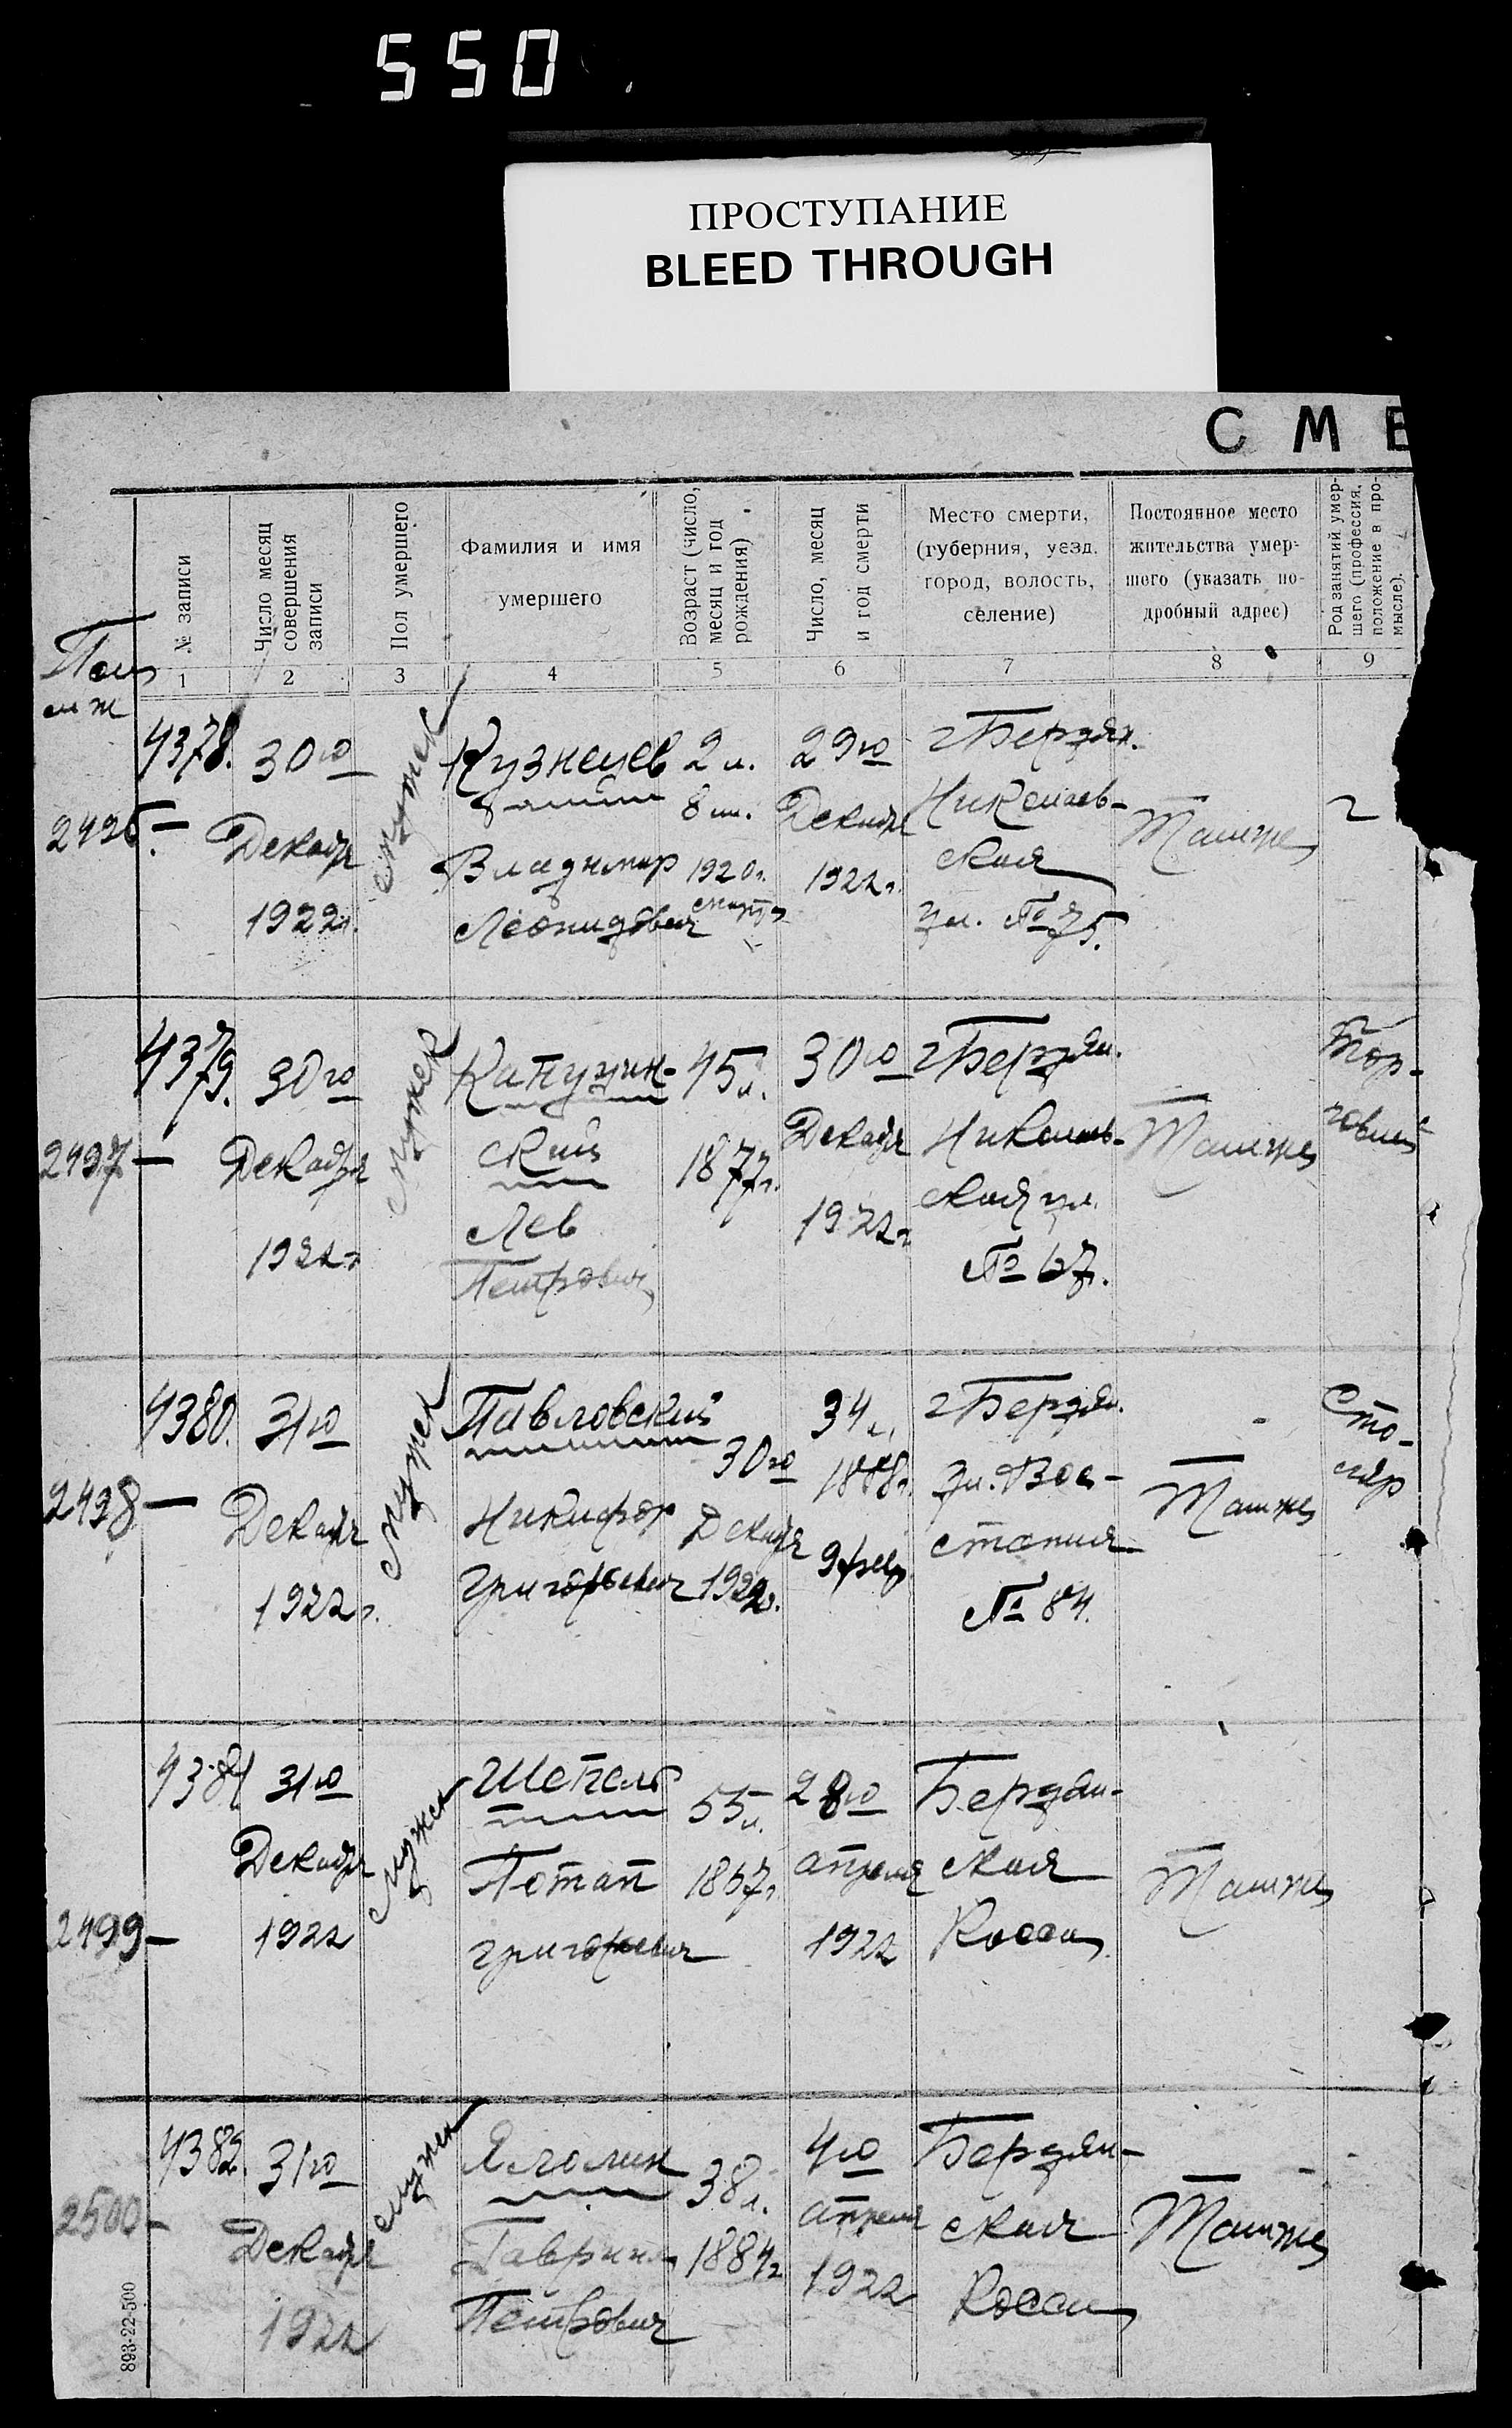 550
ПРОСТУПАНИЕ
BLEED THROUGH
С М Е
№ записи
Число месяц
совершения
записи
Пол умершего
Фамилия и имя
умершего
Возраст (число,
месяц и год
рождения)
Число, месяц
и год смерти
Место смерти,
(губерния, уезд.
город, волость,
селение)
Постоянное место
жительства умер-
шего (указать по-
дробный адрес)
Род занятий умер-
шего (профессия,
положение в про-
мысле).
1 2 3 4 5 6 7 8 9
4378.
30го
Декабр
1922г.
мужек
Кузнецев
Владимир
Леонидович
2 л.
8 м.
1920г.
марта
29го
Декабр
1922г.
г Бердян.
Николаев-
ская
ул. № 75.
Тамже
2497 —
4379.
30го
Декабря
1922г
мужек
Капузин-
ский
Лев
Петрович
45 л.
1877г.
30го
Декабр
1922г
г Бердян.
Николаев-
ская ул.
№ 67.
Тамже
Тор-
говлей
2498 —
4380.
31го
Декабр
1922г.
мужек
Павловский
Никифор
Григорьевич
30го
Декабря
1922г.
34 л.
1888г.
9 февр
г Бердян.
ул. Вос-
стания
№ 84.
Тамже
Сто-
ляр
2499 —
4381
31го
Декабр
1922
мужек
Шепель
Потап
Григорьевич
55 л.
1867г
28го
апреля
1922
Бердян-
ская
Косса
Тамже
2500 —
4382.
31го
Декабр
1922
мужек
Гаврил
Петрович
38 л.
1884г
4го
апреля
1922
Бердян-
ская
Косса
Тамже
893-22-500